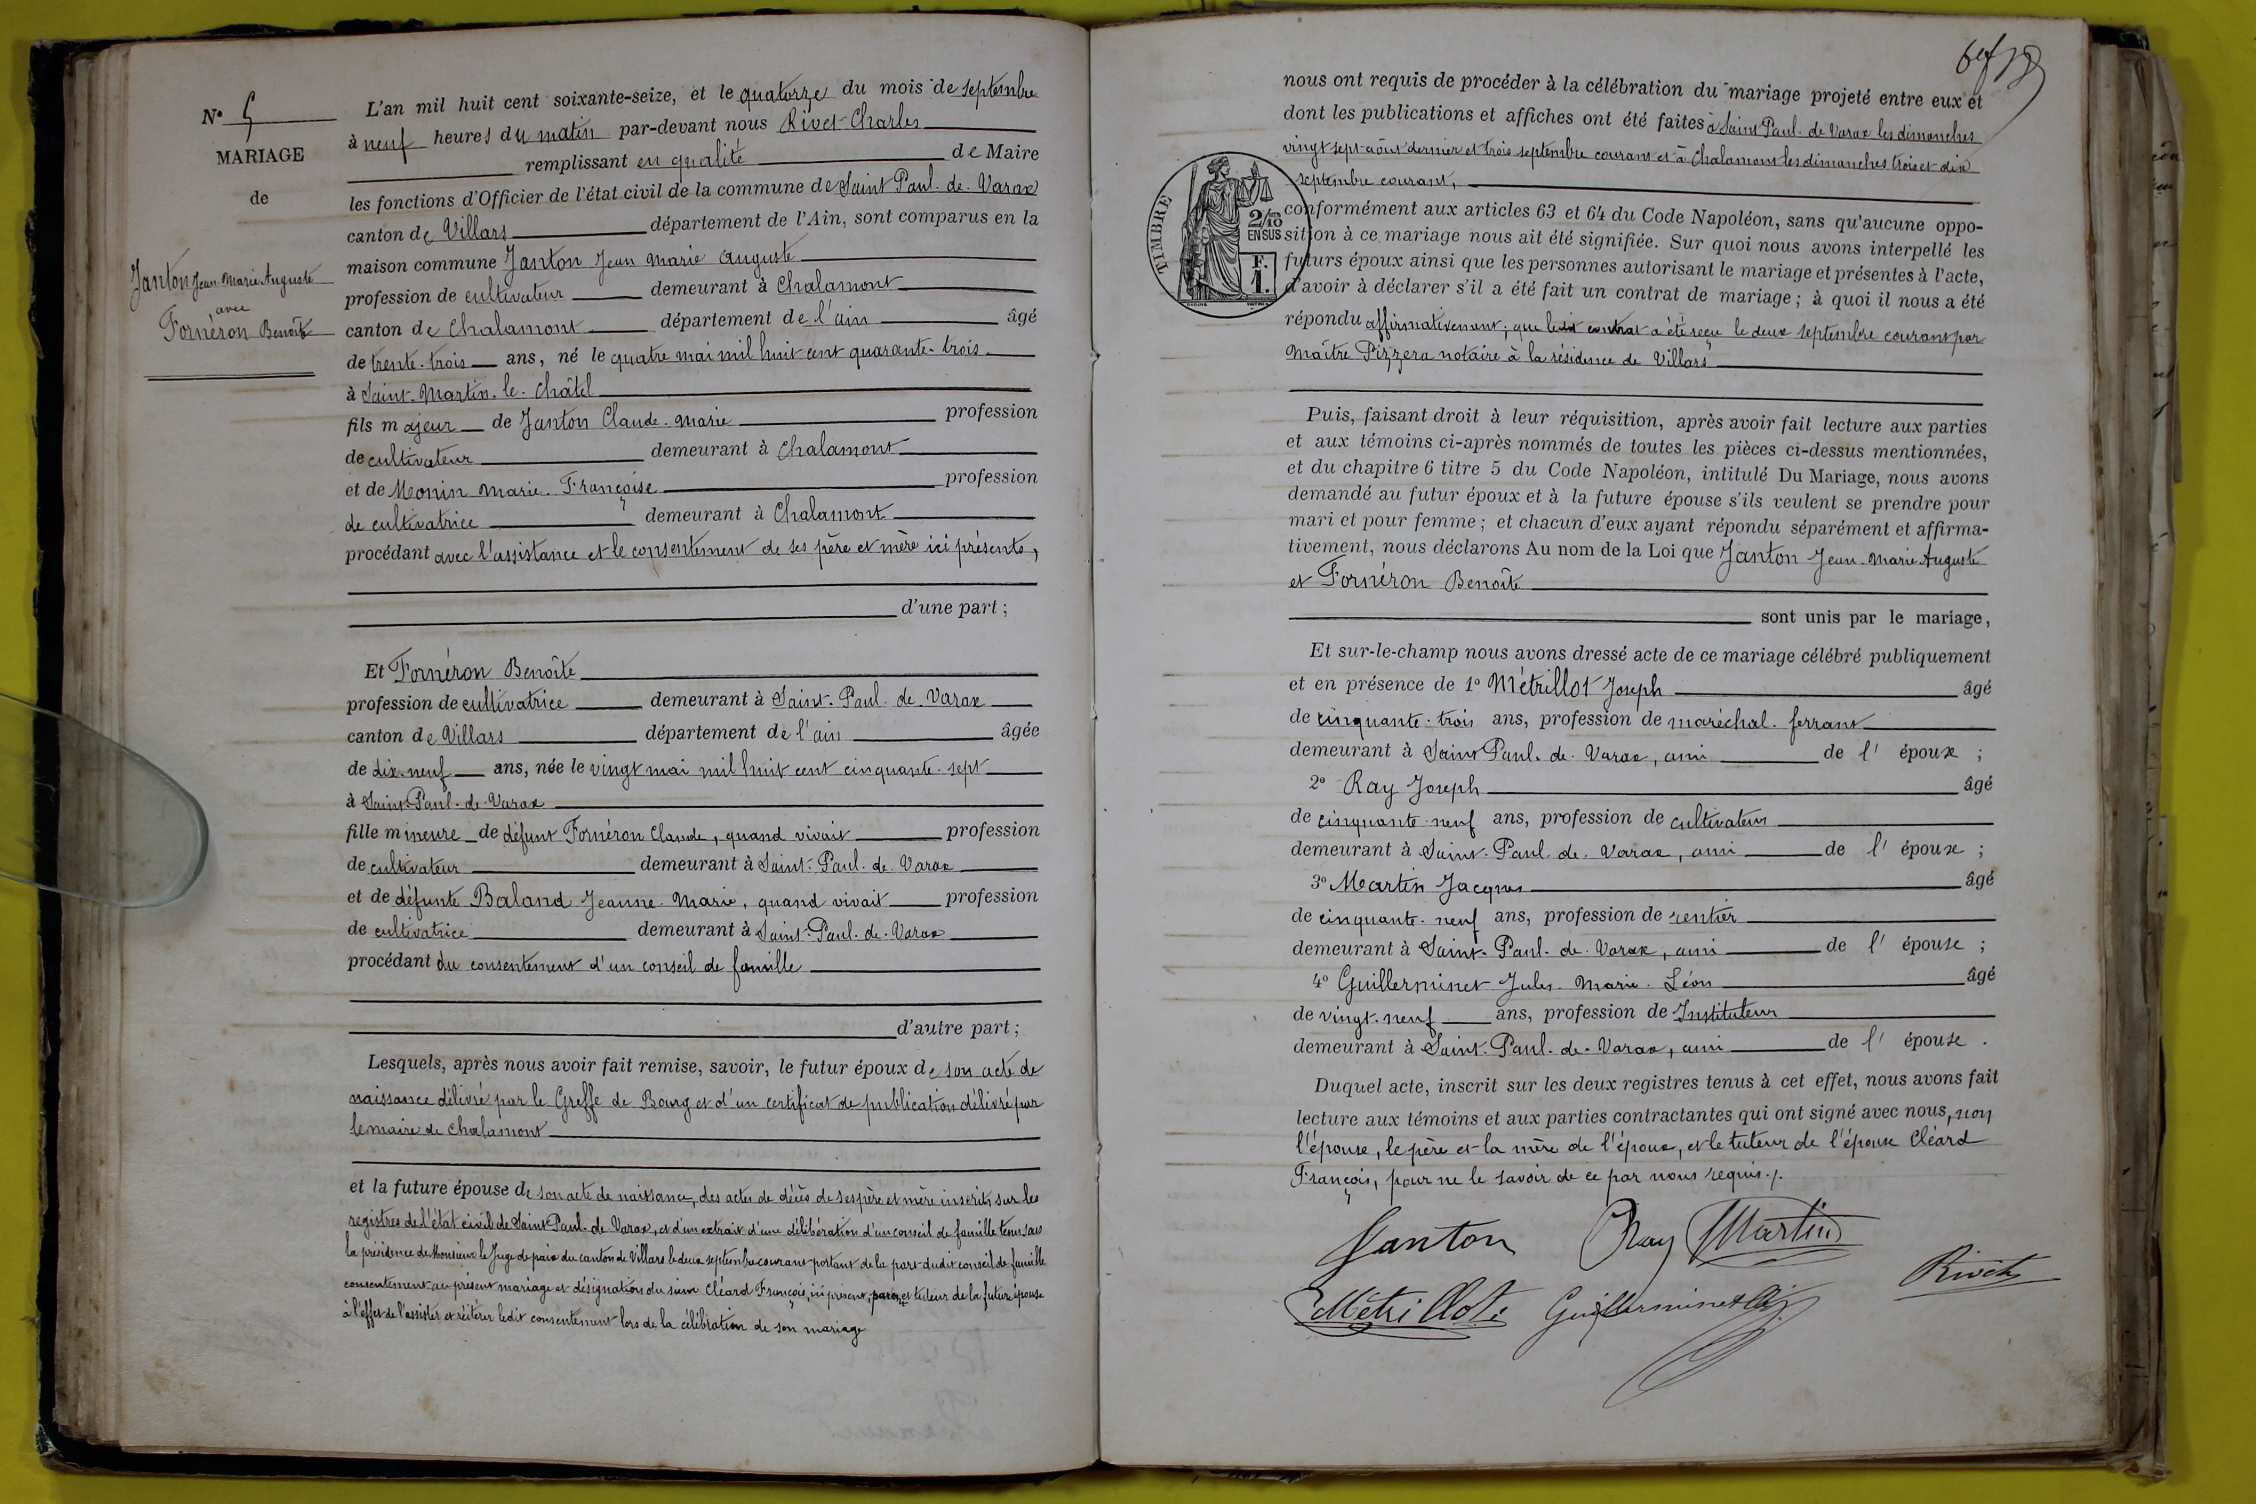 N° 5
MARIAGE
de
Janton Jean Marie Auguste
avec
Fornéron Benoîte
L'an mil huit cent soixante-seize, et le quatorze du mois de septembre
à neuf heures du matin par-devant nous Rivet Charles
remplissant en qualité de Maire
les fonctions d'Officier de l'état civil de la commune de Saint Paul. de. Varax
canton de Villars département de l'Ain, sont comparus en la
maison commune Janton Jean Marie Auguste
profession de cultivateur demeurant à Chalamont
canton de Chalamont département de l'ain âgé
de trente-trois ans, né le quatre mai mil huit cent quarante-trois
à Saint-Martin-le-Châtel
fils majeur de Janton Claude-Marie profession
de cultivateur demeurant à Chalamont
et de Monin Marie-Françoise profession
de cultivatrice demeurant à Chalamont
procédant avec l'assistance et le consentement de ses père et mère ici présents,
d'une part ;
Et Fornéron Benoîte
profession de cultivatrice demeurant à Saint-Paul-de-Varax
canton de Villars département de l'ain âgée
de dix-neuf ans, née le vingt mai mil huit cent cinquante-sept
à Saint-Paul-de-Varax
fille mineure de défunt Fornéron Claude, quand vivait profession
de cultivateur demeurant à Saint-Paul-de-Varax
et de défunte Baland Jeanne-Marie, quand vivait profession
de cultivatrice demeurant à Saint-Paul-de-Varax
procédant du consentement d'un conseil de famille
d'autre part ;
Lesquels, après nous avoir fait remise, savoir, le futur époux de son acte de
naissance délivré par le Greffe de Bourg et d'un certificat de publication délivré par
le maire de Chalamont
et la future épouse de son acte de naissance, des actes de décès de ses père et mère inscrits sur les
registres de l'état civil de Saint Paul-de-Varax, et d'un extrait d'une délibération d'un conseil de famille tenu sous
la présidence de Monsieur le Juge de paix du canton de Villars le deux septembre courant portant de la part dudit conseil de famille
consentement au présent mariage et désignation du sieur Cléard François, ici présent, tuteur de la future épouse
à l'effet de l'assister et réitérer ledit consentement lors de la célébration de son mariage
nous ont requis de procéder à la célébration du mariage projeté entre eux et
dont les publications et affiches ont été faites à Saint Paul-de-Varax les dimanches
vingt sept août dernier et trois septembre courant et à Chalamont les dimanches trois et dix
septembre courant,
TIMBRE
2/10 EN SUS
F.
1.
conformément aux articles 63 et 64 du Code Napoléon, sans qu'aucune oppo-
sition à ce mariage nous ait été signifiée. Sur quoi nous avons interpellé les
futurs époux ainsi que les personnes autorisant le mariage et présentes à l'acte,
d'avoir à déclarer s'il a été fait un contrat de mariage ; à quoi il nous a été
répondu affirmativement ; que ledit contrat a été reçu le deux septembre courant par
Maître Pizzera notaire à la résidence de Villars
Puis, faisant droit à leur réquisition, après avoir fait lecture aux parties
et aux témoins ci-après nommés de toutes les pièces ci-dessus mentionnées,
et du chapitre 6 titre 5 du Code Napoléon, intitulé Du Mariage, nous avons
demandé au futur époux et à la future épouse s'ils veulent se prendre pour
mari et pour femme ; et chacun d'eux ayant répondu séparément et affirma-
tivement, nous déclarons Au nom de la Loi que Janton Jean-Marie-Auguste
et Fornéron Benoîte
sont unis par le mariage,
Et sur-le-champ nous avons dressé acte de ce mariage célébré publiquement
et en présence de 1° Métrillot Joseph âgé
de cinquante-trois ans, profession de maréchal-ferrant
demeurant à Saint Paul-de-Varax, ami de l'époux ;
2° Ray Joseph âgé
de cinquante-neuf ans, profession de cultivateur
demeurant à Saint-Paul-de-Varax, ami de l'époux ;
3° Martin Jacques âgé
de cinquante-neuf ans, profession de rentier
demeurant à Saint-Paul-de-Varax, ami de l'épouse ;
4° Guillerminet Jules-Marie-Léon âgé
de vingt-neuf ans, profession de Instituteur
demeurant à Saint-Paul-de-Varax, ami de l'épouse .
Duquel acte, inscrit sur les deux registres tenus à cet effet, nous avons fait
lecture aux témoins et aux parties contractantes qui ont signé avec nous, non
l'épouse, le père et la mère de l'époux, et le tuteur de l'épouse Cléard
François, pour ne le savoir de ce par nous requis./.
Janton Ray Martin
Métrillot Guillerminet Rivet